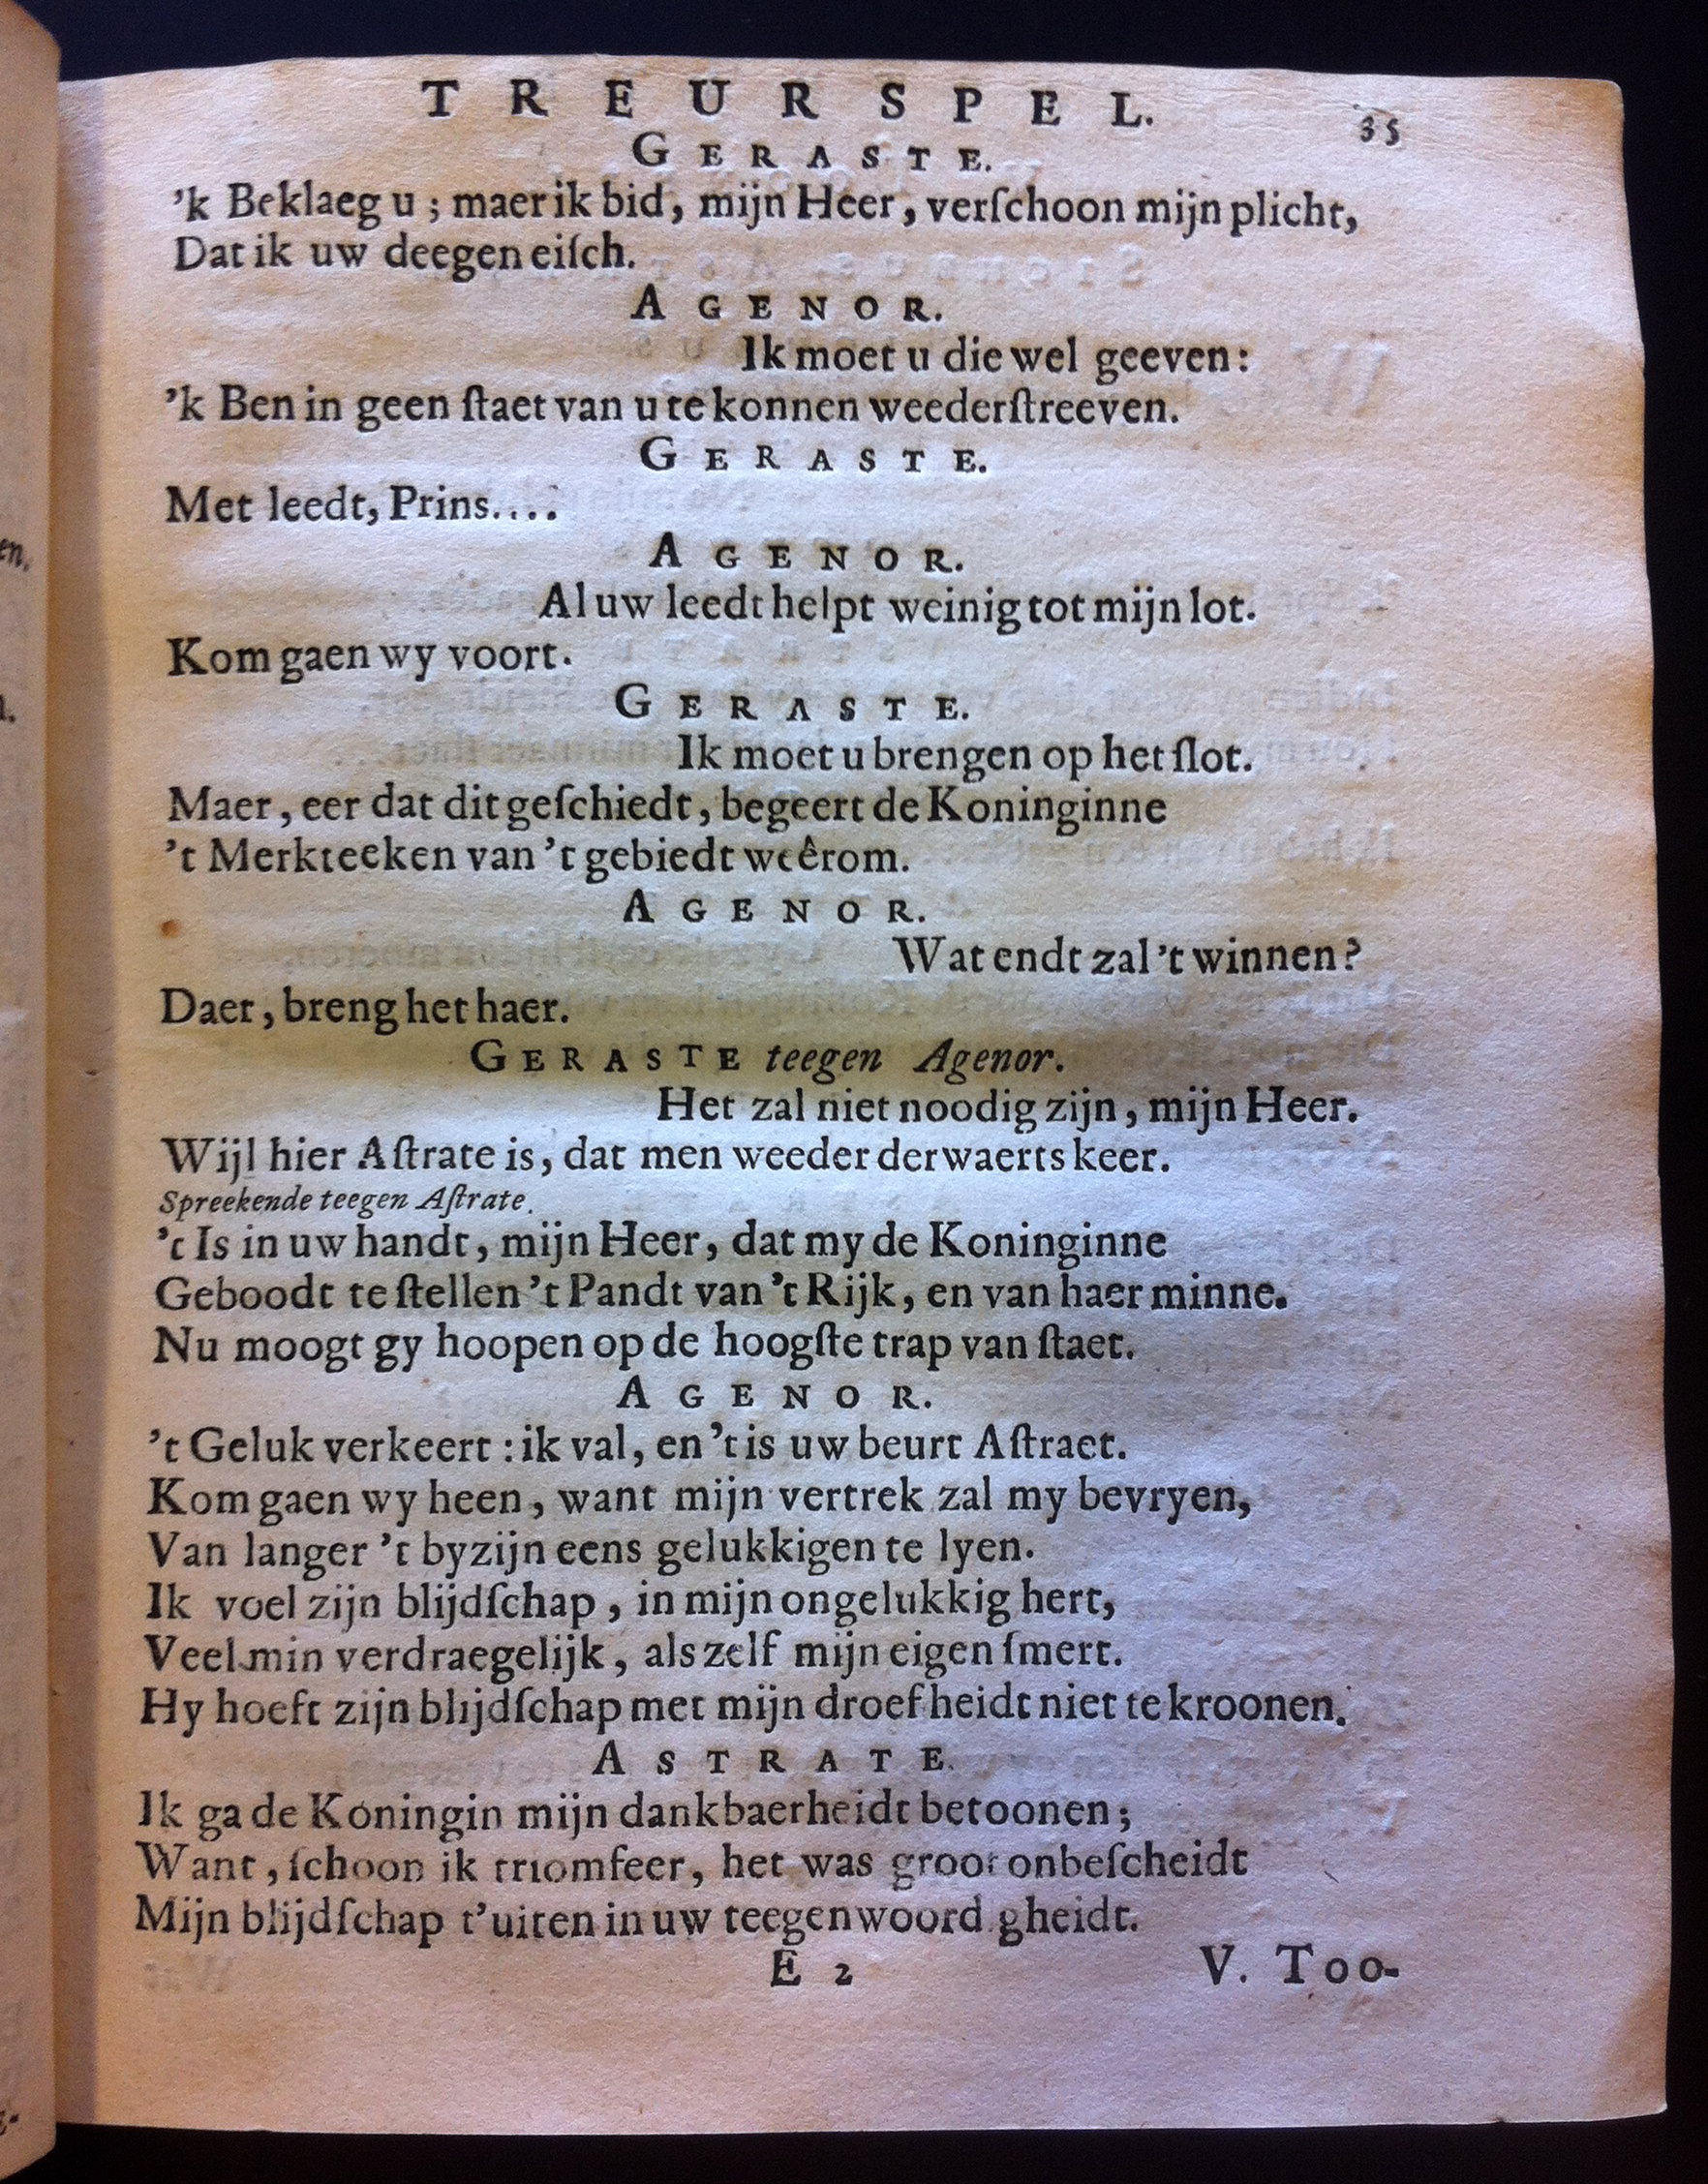 TREURSPEL. 35
GERASTE.
’k Beklaeg u ; maer ik bid, mijn Heer, verſchoon mijn plicht,
Dat ik uw deegen eiſch.
AGENOR.
Ik moet u die wel geeven:
’k Ben in geen ſtaet van u te konnen weederſtreeven.
GERASTE.
Met leedt, Prins....
AGENOR.
Al uw leedt helpt weinig tot mijn lot.
Kom gaen wy voort.
GERASTE.
Ik moet u brengen op het ſlot.
Maer, eer dat dit geſchiedt, begeert de Koninginne
’t Merkteeken van ’t gebiedt weêrom.
AGENOR.
Wat endt zal ’t winnen?
Daer, breng het haer.
GERASTE teegen Agenor.
Het zal niet noodig zijn, mijn Heer.
Wijl hier Aſtrate is, dat men weeder derwaerts keer.
Spreekende teegen Aſtrate.
’t Is in uw handt, mijn Heer, dat my de Koninginne
Geboodt te ſtellen ’t Pandt van ’t Rijk, en van haer minne.
Nu moogt gy hoopen op de hoogſte trap van ſtaet.
AGENOR.
’t Geluk verkeert : ik val, en ’t is uw beurt Aſtraet.
Kom gaen wy heen, want mijn vertrek zal my bevryen,
Van langer ’t byzijn eens gelukkigen te lyen.
Ik voel zijn blijdſchap, in mijn ongelukkig hert,
Veel min verdraegelijk, als zelf mijn eigen ſmert.
Hy hoeft zijn blijdſchap met mijn droefheidt niet te kroonen.
ASTRATE.
Ik ga de Koningin mijn dankbaerheidt betoonen;
Want, ſchoon ik triomfeer, het was groot onbeſcheidt
Mijn blijdſchap t’uiten in uw teegenwoord gheidt.
E 2 V. Too-